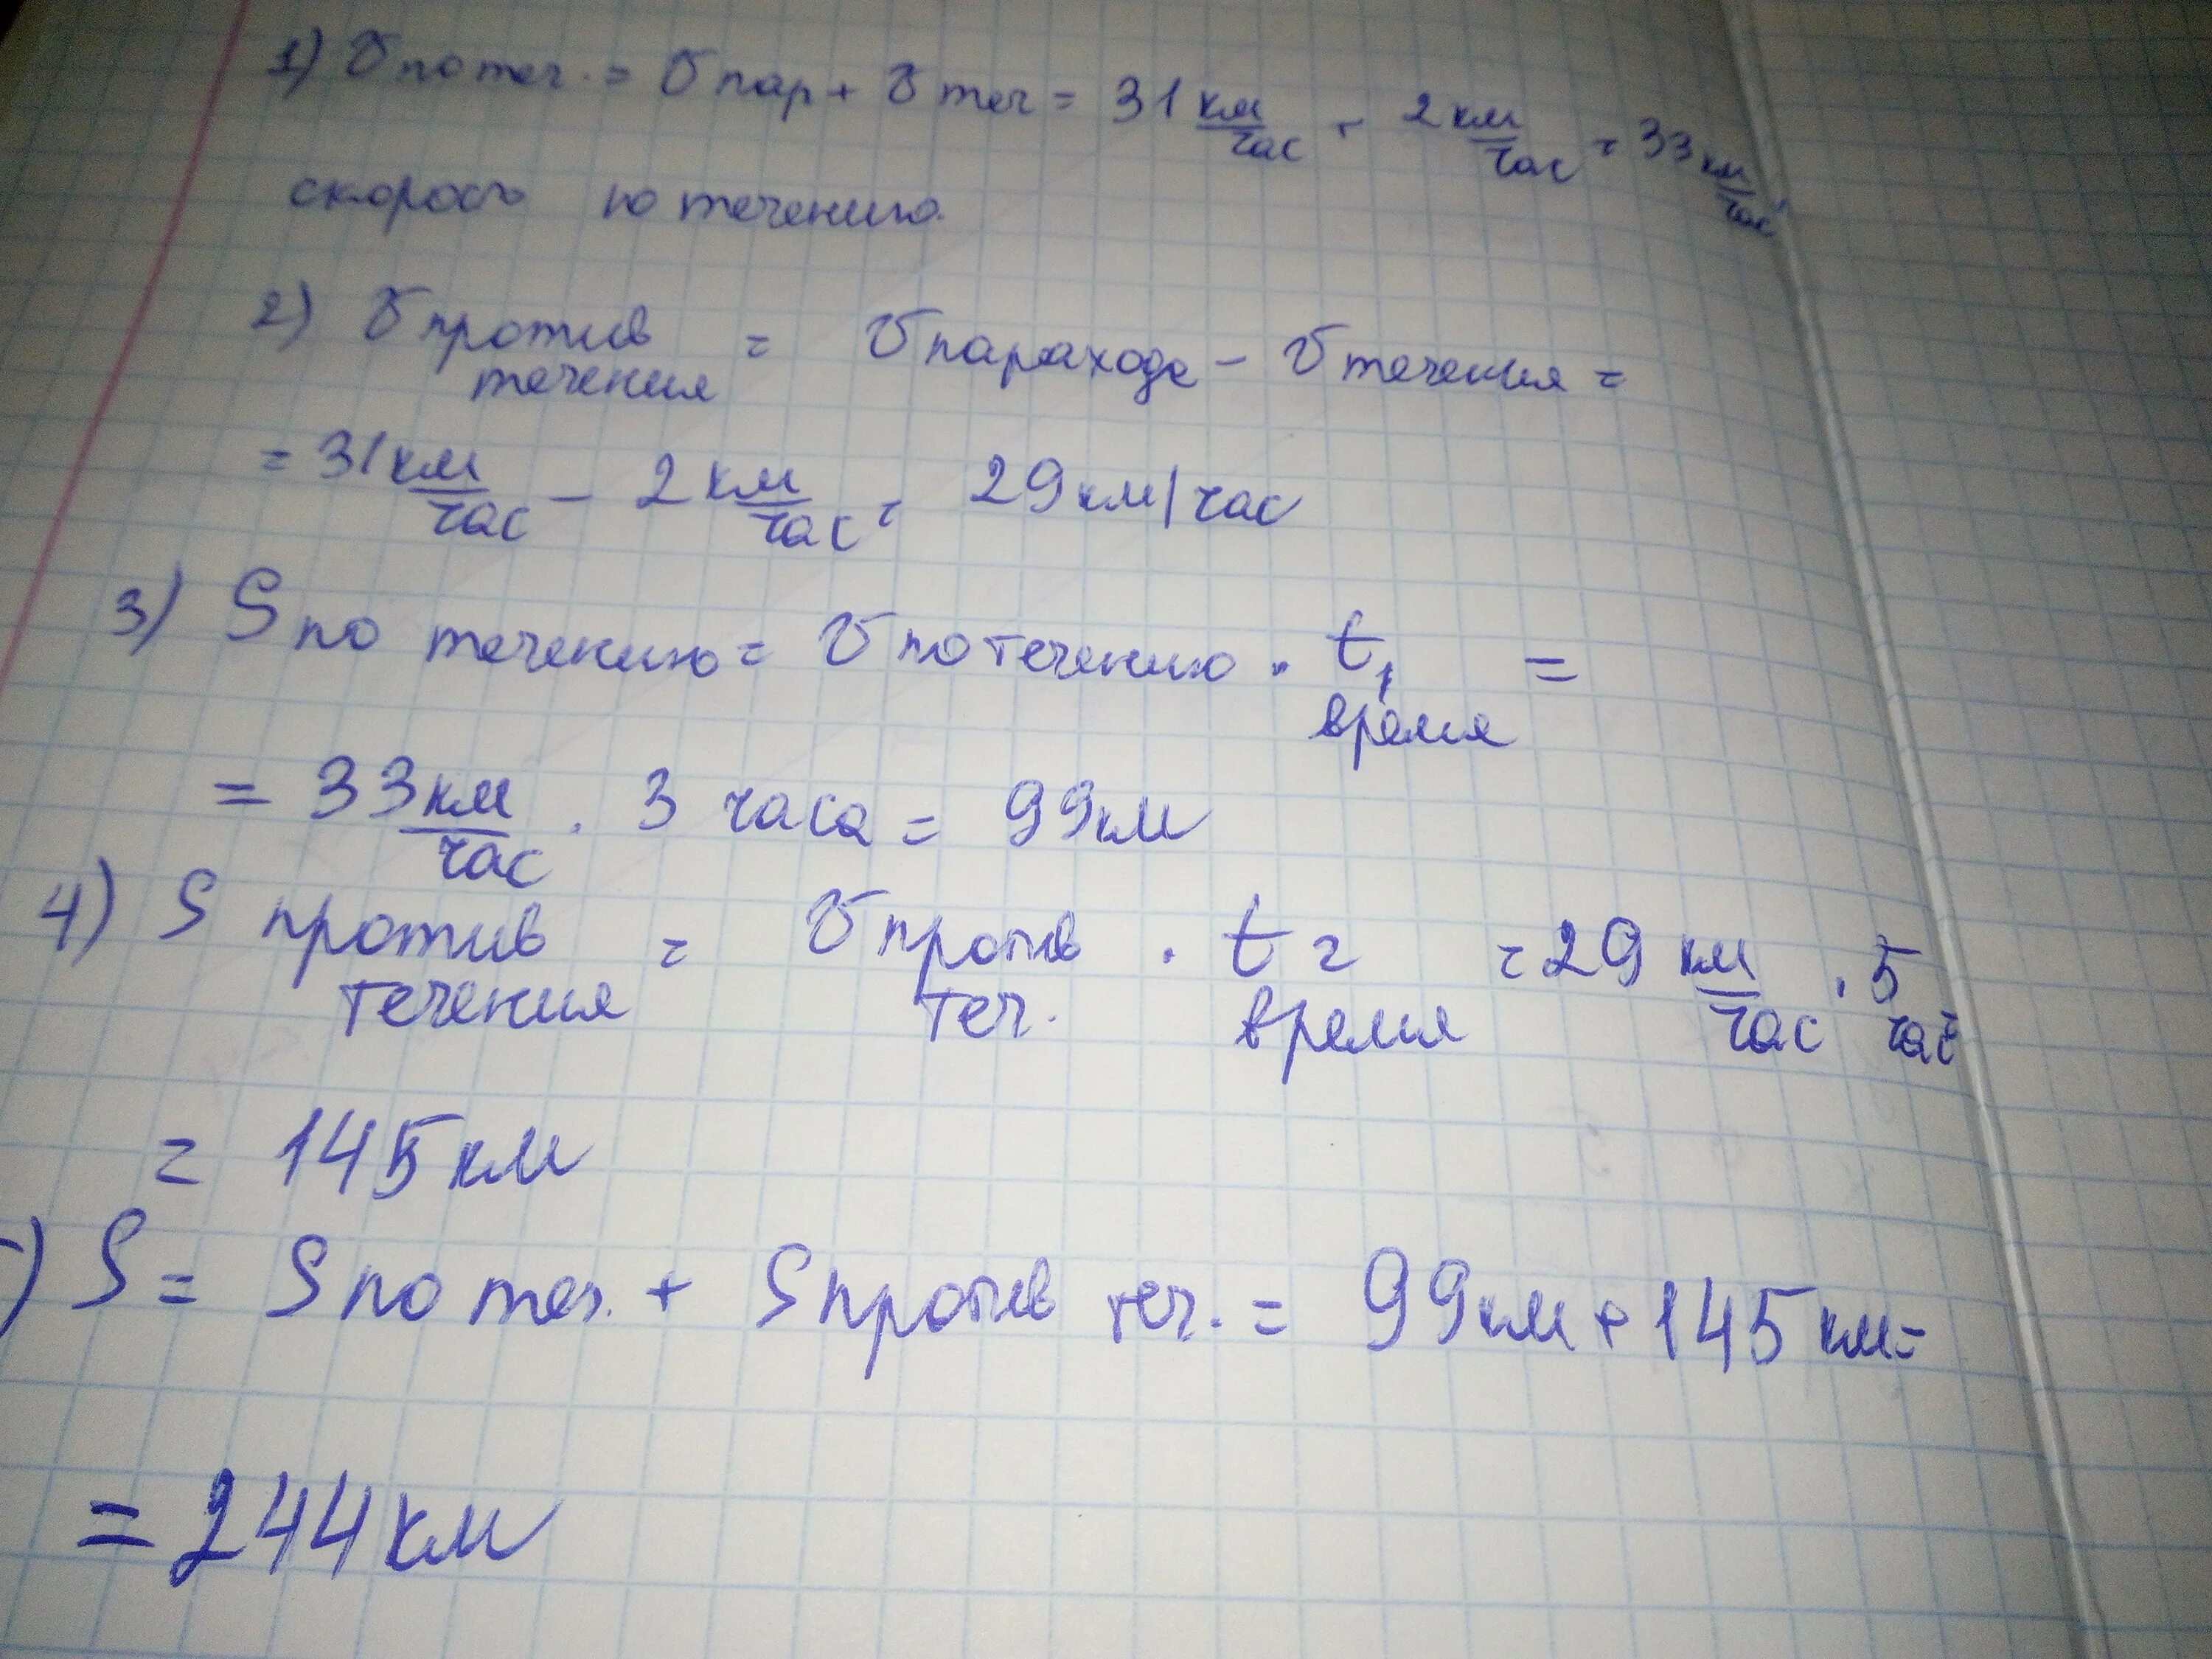 1) υ по теч. = υ пар + υ теч = 31 км/час + 2 км/час = 33 км/час
скорость по течению.
2) υ против течения = υ парахода – υ течения =
= 31 км/час – 2 км/час = 29 км/час
3) S по течению = υ по течению · t₁ время =
= 33 км/час · 3 часа = 99 км
4) S против течения = υ против теч. · t₂ время = 29 км/час · 5 час
= 145 км
) S = S по теч. + S против теч. = 99 км + 145 км =
= 244 км